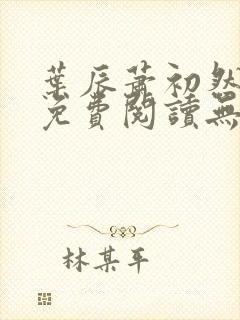 葉辰蕭初然
免費閱讀無
林某平